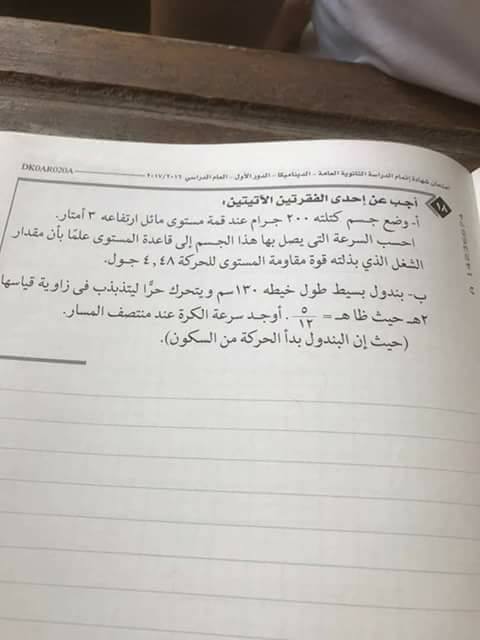 DK0AR020A
امتحان شهادة إتمام الدراسة الثانوية العامة - الديناميكا - الدور الأول - العام الدراسي ٢٠١٧/٢٠١٦
١٨ أجب عن إحدى الفقرتين الآتيتين:
أ- وضع جسم كتلته ٢٠٠ جرام عند قمة مستوى مائل ارتفاعه ٣ أمتار.
احسب السرعة التى يصل بها هذا الجسم إلى قاعدة المستوى علمًا بأن مقدار
الشغل الذي بذلته قوة مقاومة المستوى للحركة ٤,٤٨ جول.
ب- بندول بسيط طول خيطه ١٣٠سم ويتحرك حرًا ليتذبذب فى زاوية قياسها
٢هـ حيث ظا هـ = ٥/١٢ . أوجد سرعة الكرة عند منتصف المسار.
(حيث إن البندول بدأ الحركة من السكون).